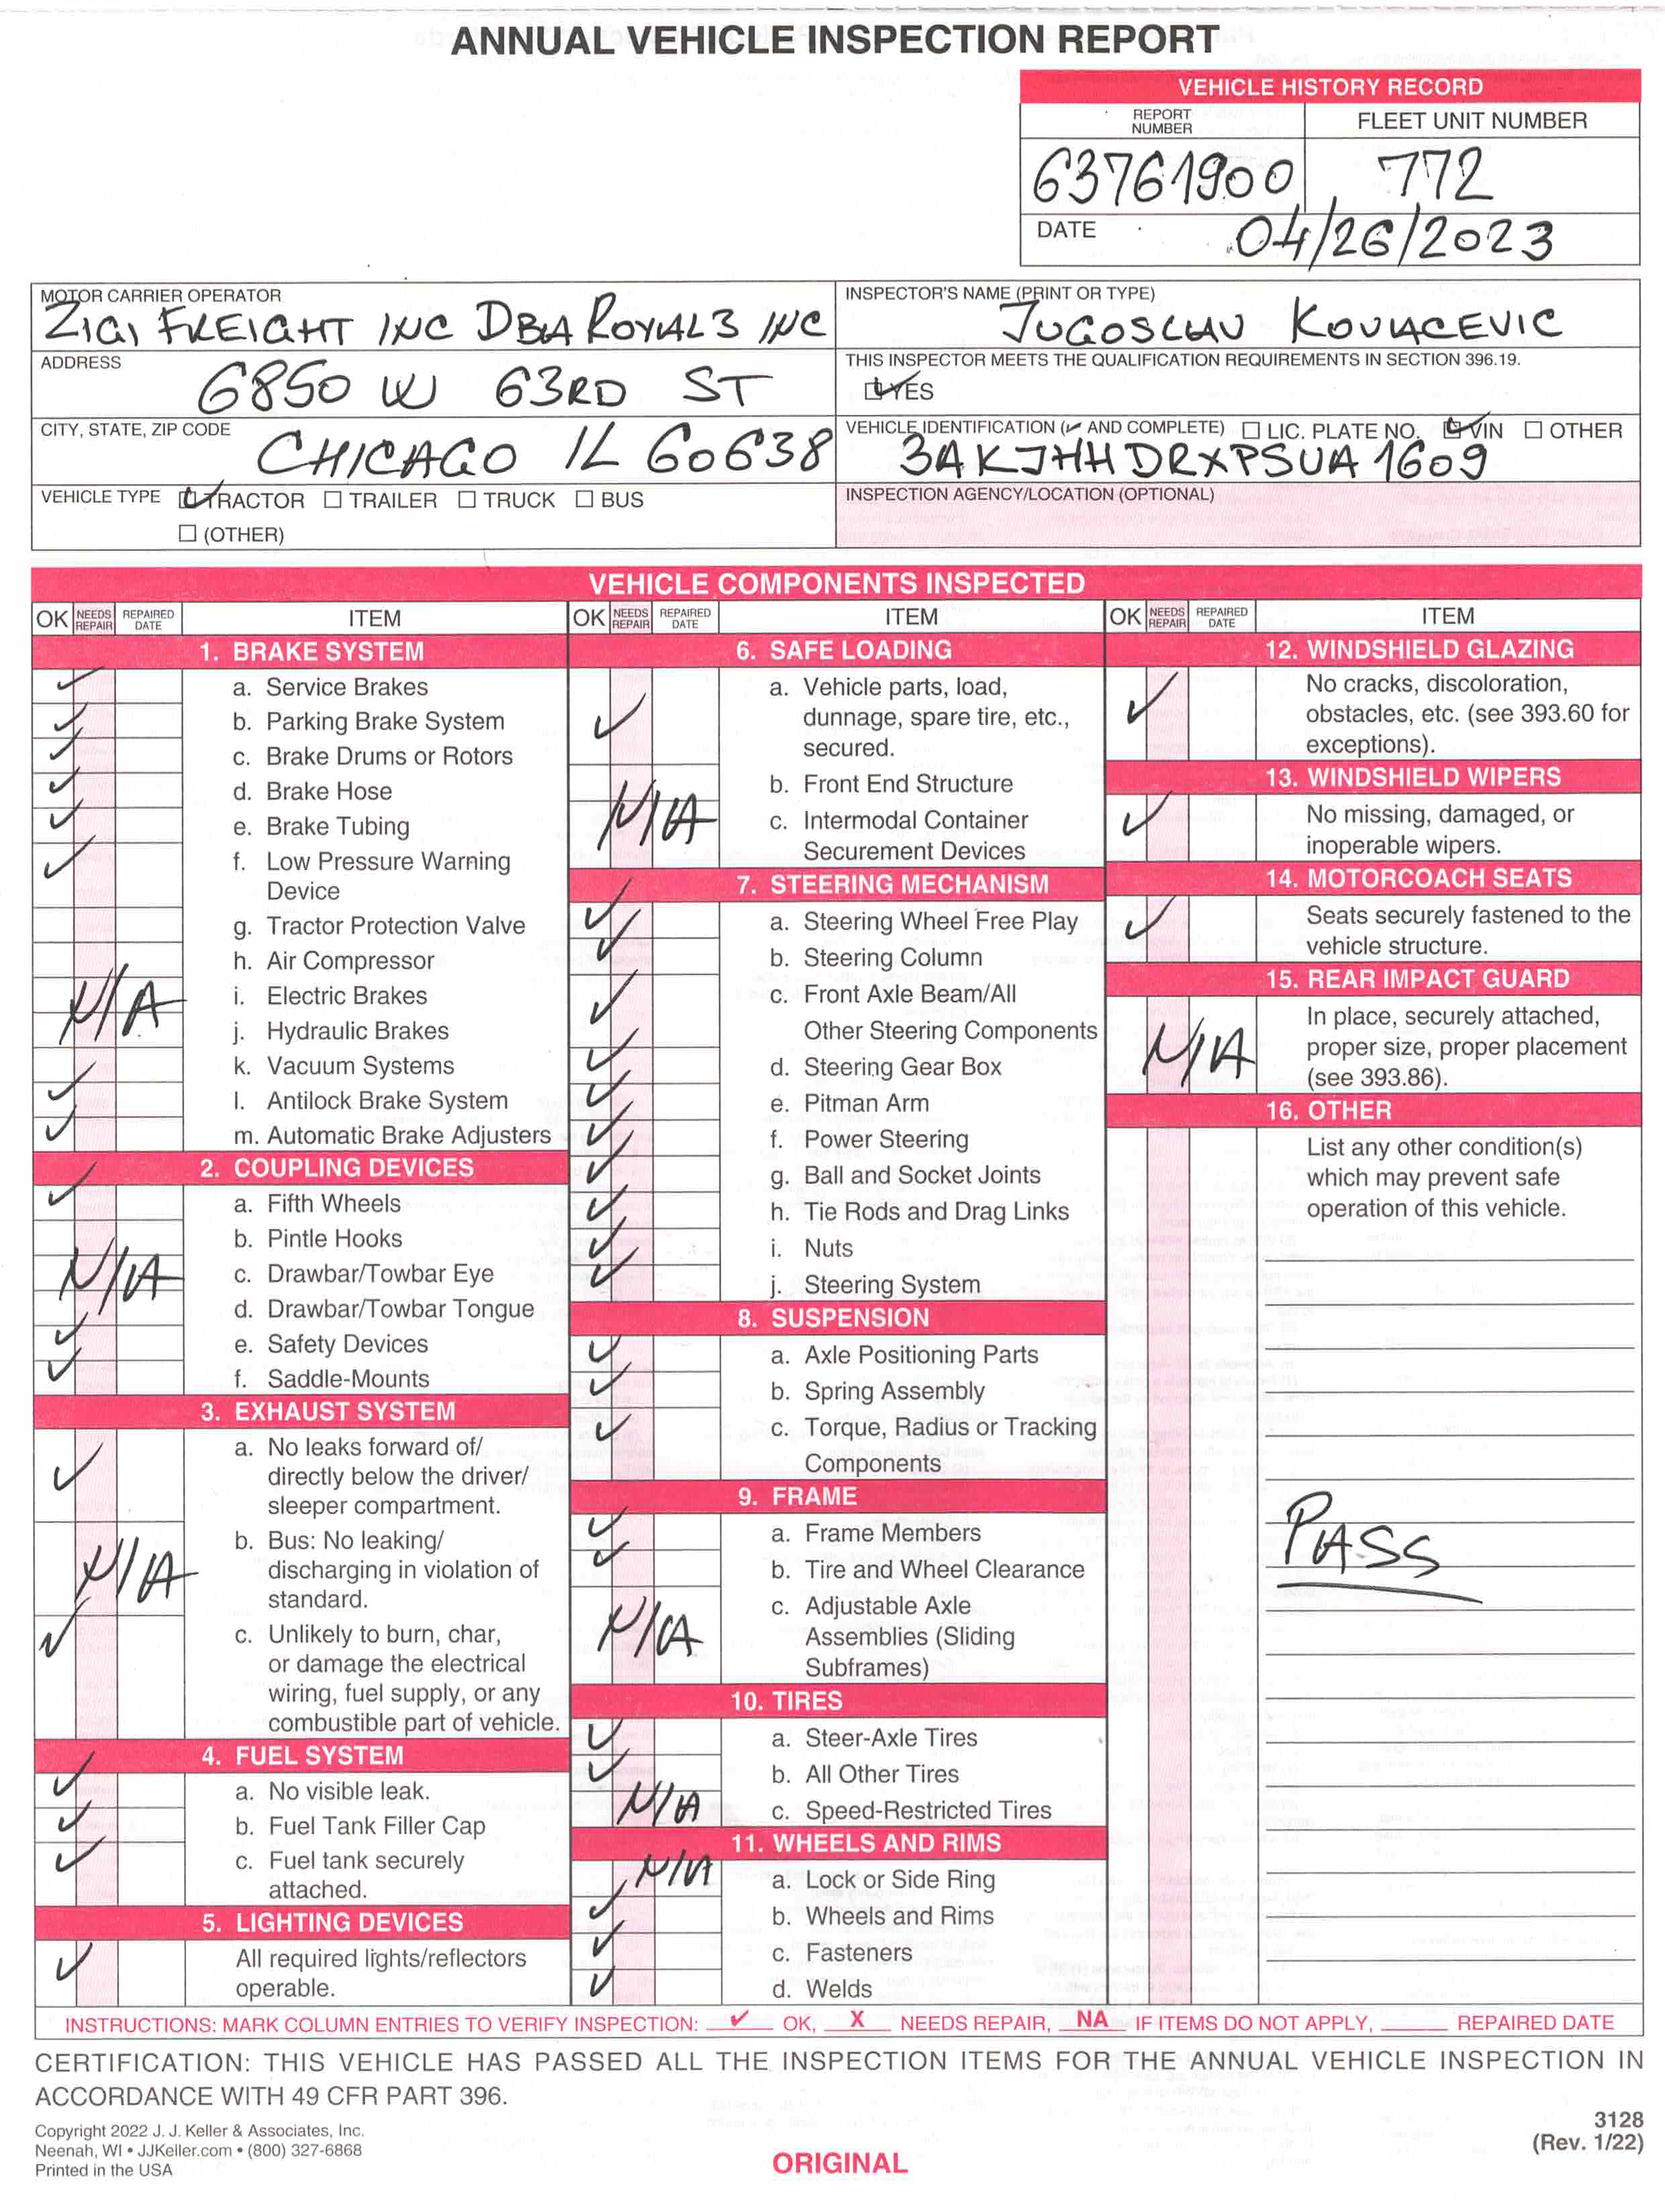 ANNUAL VEHICLE INSPECTION REPORT
VEHICLE HISTORY RECORD
REPORT NUMBER
FLEET UNIT NUMBER
63761900
772
DATE 04/26/2023
MOTOR CARRIER OPERATOR
ZIGI FREIGHT INC DBA ROYAL3 INC
INSPECTOR'S NAME (PRINT OR TYPE)
JUGOSLAV KOVACEVIC
ADDRESS
6850 W 63RD ST
THIS INSPECTOR MEETS THE QUALIFICATION REQUIREMENTS IN SECTION 396.19.
YES
CITY, STATE, ZIP CODE
CHICAGO IL 60638
VEHICLE IDENTIFICATION (✓ AND COMPLETE) ☐ LIC. PLATE NO. ☑ VIN ☐ OTHER
3AKJHHDRXPSUA1609
VEHICLE TYPE ☑ TRACTOR ☐ TRAILER ☐ TRUCK ☐ BUS
☐ (OTHER)
INSPECTION AGENCY/LOCATION (OPTIONAL)
VEHICLE COMPONENTS INSPECTED
OK NEEDS REPAIR REPAIRED DATE ITEM
1. BRAKE SYSTEM
✓ a. Service Brakes
✓ b. Parking Brake System
✓ c. Brake Drums or Rotors
✓ d. Brake Hose
✓ e. Brake Tubing
✓ f. Low Pressure Warning
Device
g. Tractor Protection Valve
h. Air Compressor
N/A i. Electric Brakes
j. Hydraulic Brakes
k. Vacuum Systems
✓ l. Antilock Brake System
✓ m. Automatic Brake Adjusters
2. COUPLING DEVICES
✓ a. Fifth Wheels
b. Pintle Hooks
N/A c. Drawbar/Towbar Eye
d. Drawbar/Towbar Tongue
✓ e. Safety Devices
✓ f. Saddle-Mounts
3. EXHAUST SYSTEM
✓ a. No leaks forward of/
directly below the driver/
sleeper compartment.
N/A b. Bus: No leaking/
discharging in violation of
standard.
✓ c. Unlikely to burn, char,
or damage the electrical
wiring, fuel supply, or any
combustible part of vehicle.
4. FUEL SYSTEM
✓ a. No visible leak.
✓ b. Fuel Tank Filler Cap
✓ c. Fuel tank securely
attached.
5. LIGHTING DEVICES
✓ All required lights/reflectors
operable.
OK NEEDS REPAIR REPAIRED DATE ITEM
6. SAFE LOADING
✓ a. Vehicle parts, load,
dunnage, spare tire, etc.,
secured.
b. Front End Structure
N/A c. Intermodal Container
Securement Devices
7. STEERING MECHANISM
✓ a. Steering Wheel Free Play
✓ b. Steering Column
✓ c. Front Axle Beam/All
Other Steering Components
✓ d. Steering Gear Box
✓ e. Pitman Arm
✓ f. Power Steering
✓ g. Ball and Socket Joints
✓ h. Tie Rods and Drag Links
✓ i. Nuts
✓ j. Steering System
8. SUSPENSION
✓ a. Axle Positioning Parts
✓ b. Spring Assembly
✓ c. Torque, Radius or Tracking
Components
9. FRAME
✓ a. Frame Members
✓ b. Tire and Wheel Clearance
N/A c. Adjustable Axle
Assemblies (Sliding
Subframes)
10. TIRES
✓ a. Steer-Axle Tires
✓ b. All Other Tires
N/A c. Speed-Restricted Tires
11. WHEELS AND RIMS
N/A a. Lock or Side Ring
✓ b. Wheels and Rims
✓ c. Fasteners
✓ d. Welds
OK NEEDS REPAIR REPAIRED DATE ITEM
12. WINDSHIELD GLAZING
✓ No cracks, discoloration,
obstacles, etc. (see 393.60 for
exceptions).
13. WINDSHIELD WIPERS
✓ No missing, damaged, or
inoperable wipers.
14. MOTORCOACH SEATS
✓ Seats securely fastened to the
vehicle structure.
15. REAR IMPACT GUARD
N/A In place, securely attached,
proper size, proper placement
(see 393.86).
16. OTHER
List any other condition(s)
which may prevent safe
operation of this vehicle.
PASS
INSTRUCTIONS: MARK COLUMN ENTRIES TO VERIFY INSPECTION: ✓ OK, X NEEDS REPAIR, NA IF ITEMS DO NOT APPLY, ____ REPAIRED DATE
CERTIFICATION: THIS VEHICLE HAS PASSED ALL THE INSPECTION ITEMS FOR THE ANNUAL VEHICLE INSPECTION IN
ACCORDANCE WITH 49 CFR PART 396.
Copyright 2022 J. J. Keller & Associates, Inc.
Neenah, WI • JJKeller.com • (800) 327-6868
Printed in the USA
ORIGINAL
3128
(Rev. 1/22)